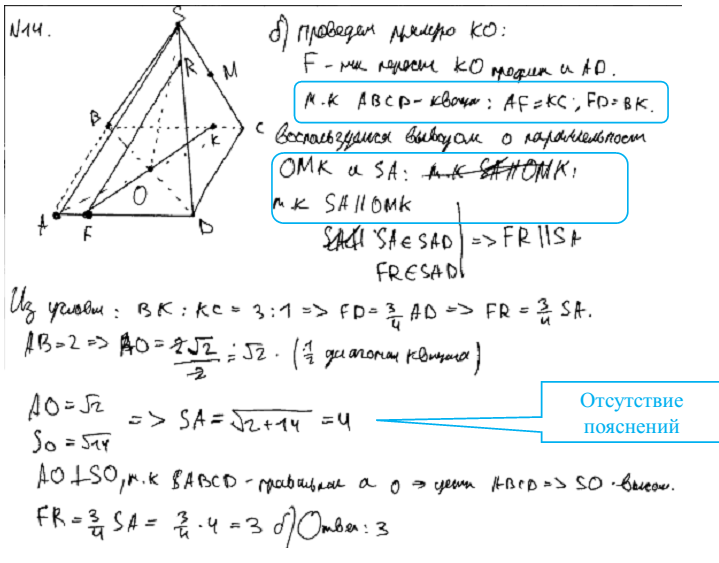 N14.
S
R
M
B
K
C
O
A
F
D
б) Проведем прямую KO:
F - KO прямой и AD.
т.к ABCD - квадрат: AF=KC, FD=BK.
Воспользуемся выводом о параллельности
OMK и SA:
т.к SA||OMK
SA∈SAD => FR||SA
FR∈SAD
Из условия: BK:KC = 3:1 => FD = 3/4 AD => FR = 3/4 SA.
AB=2 => AO = 2√2/2 = √2. (1/2 диагонали квадрата)
AO=√2
SO=√14
=> SA = √2+14 = 4
Отсутствие
пояснений
AO⊥SO, т.к SABCD - правильная а O → центр ABCD => SO - высота.
FR = 3/4 SA = 3/4 · 4 = 3 б) Ответ: 3